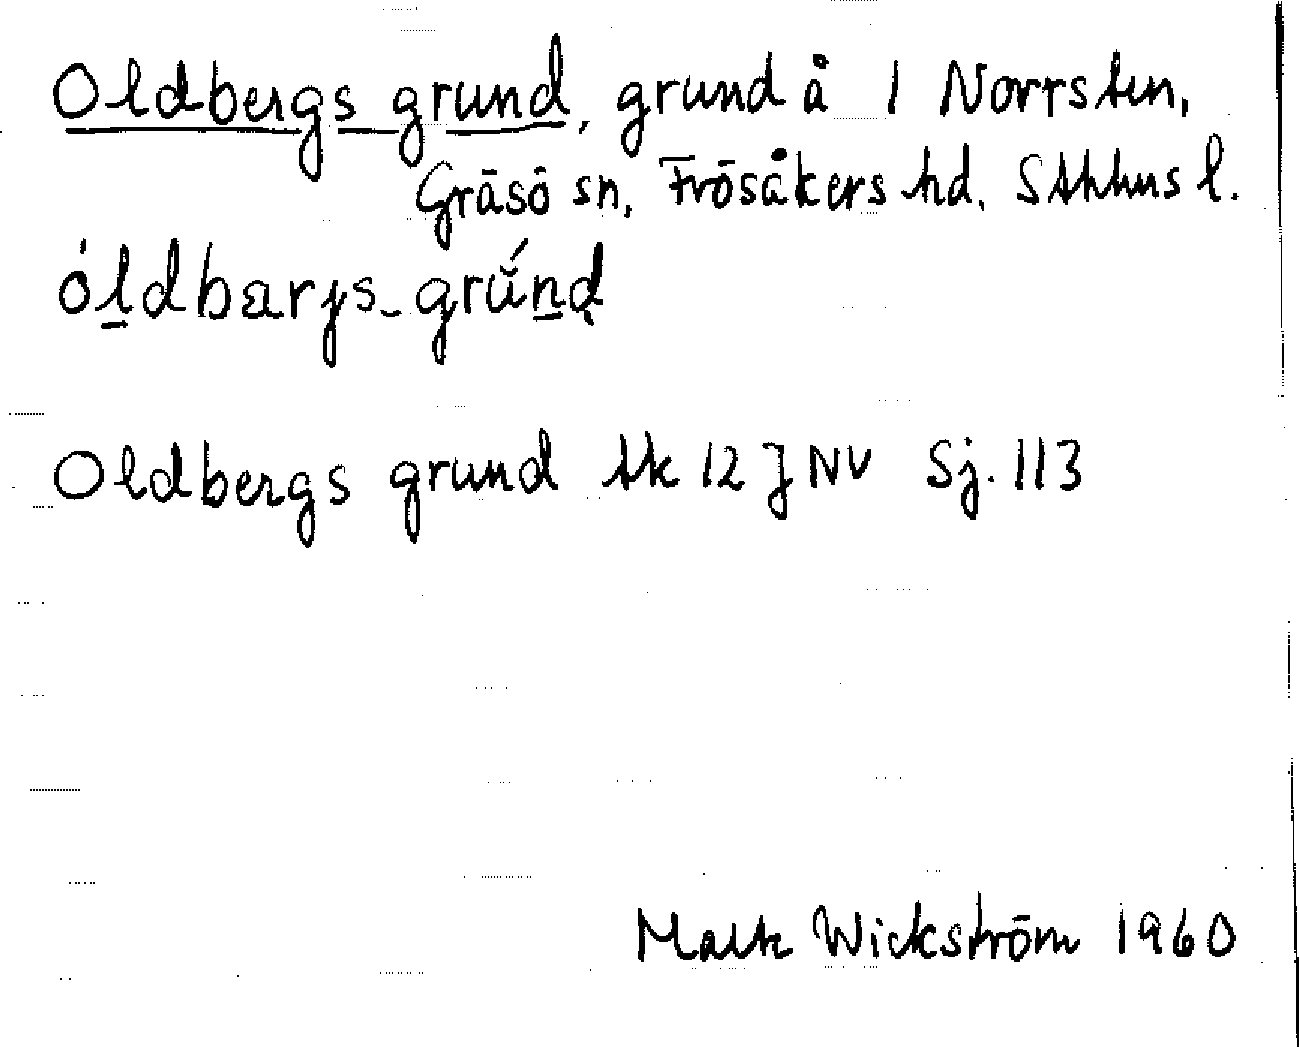 Oldbergs grund, grund å 1 Norrsten,
Gräsö sn, Frösåkers hd, Sthlms l.
óldbærjs-grŭ́nd
Oldbergs grund tk 12 J NV Sj. 113
Maltz Wickström 1960